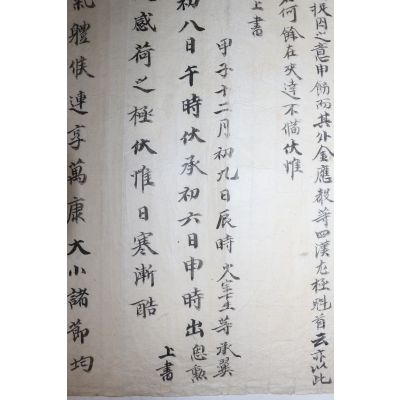 投因之意申飭而其外金應殷等四漢尤極甦首云亦以此
何餘在夾達不備伏惟
上書
甲子十二月初九日辰時 等承巽
初八日午時伏承初六日申時出
上書
感荷之極伏惟日寒漸酷
氣體候連享萬康大小諸節均